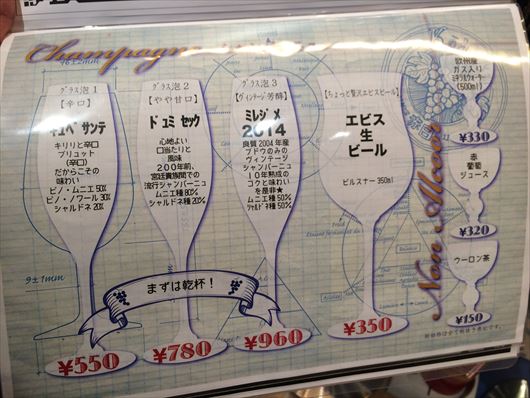 Champagne
グラス泡1
【辛口】
キュベ サンテ
キリリと辛口
ブリュット
(辛口)
だからこその
味わい
ピノ・ムニエ 50%
ピノ・ノワール 30%
シャルドネ 20%
¥550
グラス泡2
【やや甘口】
ドュミ セック
心地よい
口当たりと
風味
200年前、
宮廷貴族間での
流行シャンパーニュ
ムニエ種 80%
シャルドネ種 20%
¥780
グラス泡3
【ヴィンテージ芳醇】
ミレジメ
2014
良質2004年産
ブドウのみの
ヴィンテージ
シャンパーニュ
10年熟成の
コクと味わい
を是非★
ムニエ種 50%
シャルドネ種 50%
¥960
【ちょっと贅沢エビスビール】
エビス
生
ビール
ピルスナー 350ml
¥350
まずは乾杯!
Non Alcool
欧州産
ガス入り
ミネラルウォーター
(500ml)
¥330
赤
葡萄
ジュース
¥320
ウーロン茶
¥150
9±1mm